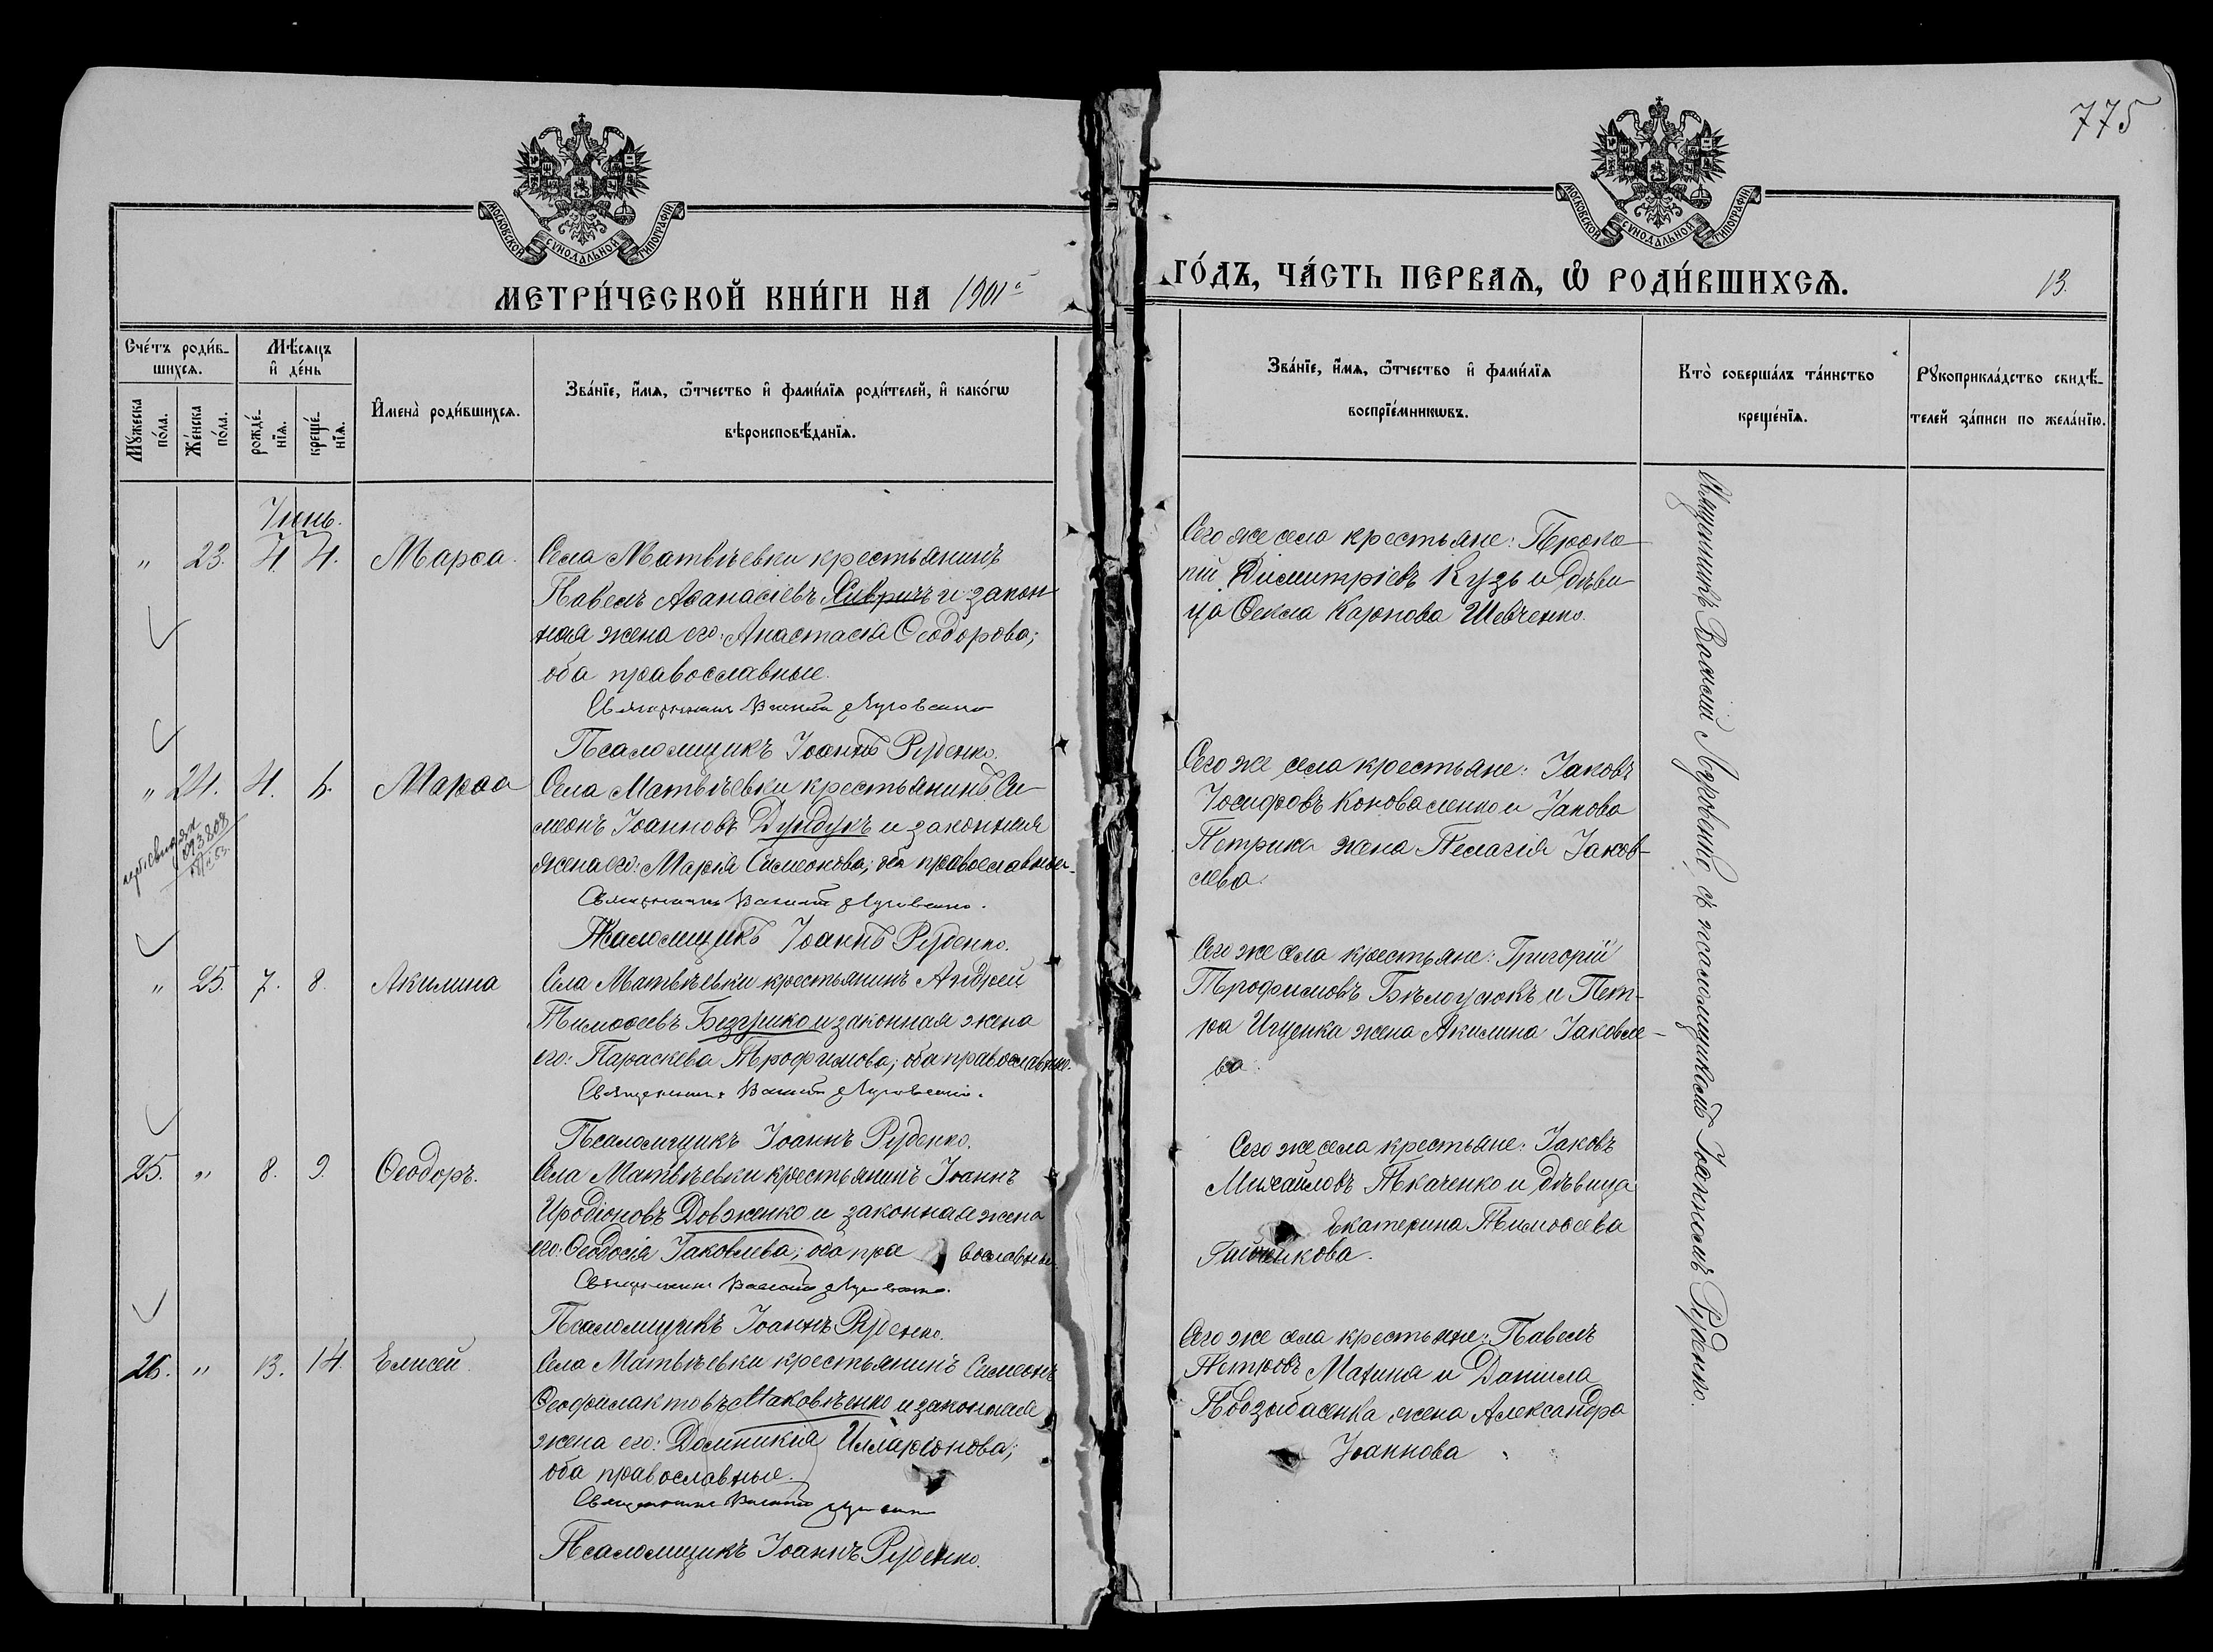 775
МОСКОВСКОЙ СѴНОДАЛЬНОЙ ТИПОГРАФІИ
МОСКОВСКОЙ СѴНОДАЛЬНОЙ ТИПОГРАФІИ
МЕТРИ́ЧЕСКОЙ КНИ́ГИ НА 1901 ГО́ДЪ, ЧА́СТЬ ПЕРВАѦ, Ѿ РОДИ́ВШИХСѦ.
13.
Сче́тъ роди́в-
шихсѧ.
Мꙋ́жеска по́ла.
Же́нска по́ла.
Мѣ́сѧцъ
и҆ де́нь
рожде́-нїѧ.
креще́-нїѧ.
И҆мена̀ роди́вшихсѧ.
Зва́нїе, и҆́мѧ, ѻ҆́тчество и҆ фами́лїѧ роди́телей, и҆ како́гѡ
вѣроисповѣ́данїѧ.
Зва́нїе, и҆́мѧ, ѻ҆́тчество и҆ фами́лїѧ
воспрїе́мникѡвъ.
Кто̀ соверша́лъ та́инство
креще́нїѧ.
Рꙋкоприкла́дство свидѣ́-
телей за́писи по жела́нїю.
Іюнь.
" 23. 4. 4. Марѳа.
Села Матвѣевки крестьянинъ
Павелъ Аѳанасіевъ и закон
ная жена его: Анастасія Ѳеодорова;
оба православные.
Священникъ Василій Луговенко
Псаломщикъ Іоаннъ Руденко.
Сего же села крестьяне: Проко-
пій Димитріевъ Кузь и дѣви-
ца Ѳекла Карпова Шевченко.
" 24. 4. 6. Марѳа
Села Матвѣевки крестьянинъ Си-
меонъ Іоанновъ Дундукъ и законная
жена его: Марія Симеонова; оба православные.
Священникъ Василій Луговенко.
Псаломщикъ Іоаннъ Руденко.
Сего же села крестьяне: Іаковъ
Іосифовъ Коноваленко и Іакова
Петрика жена Пелагія Іаков-
лева.
" 25. 7. 8. Акилина
Села Матвѣевки крестьянинъ Андрей
Тимоѳеевъ Безушко и законная жена
его: Параскева Трофимова; оба православные.
Священникъ Василій Луговенко.
Псаломщикъ Іоаннъ Руденко.
Сего же села крестьяне: Григорій
Трофимовъ Бѣлоусюкъ и Пет-
ра Ищенка жена Акилина Іаковле-
ва.
25. " 8. 9. Ѳеодоръ.
Села Матвѣевки крестьянинъ Іоаннъ
Иродіоновъ Довженко и законная жена
его: Ѳеодосія Іаковлева; оба пра вославные.
Священникъ Василій Луговенко.
Псаломщикъ Іоаннъ Руденко.
Сего же села крестьяне: Іаковъ
Михайловъ Ткаченко и дѣвица
Екатерина Тимоѳеева
26. " 13. 14. Елисей.
Села Матвѣевки крестьянинъ Симеонъ
Ѳеофилактовъ Маковѣенко и законная
жена его: Домникія Илларіонова;
оба православные.
Священникъ Василій Луговенко
Псаломщикъ Іоаннъ Руденко.
Сего же села крестьяне: Павелъ
Петровъ Махиня и Даніила
жена Александра
Іоаннова
Священникъ Василій Луговенко, съ псаломщикомъ Іоанномъ Руденко.